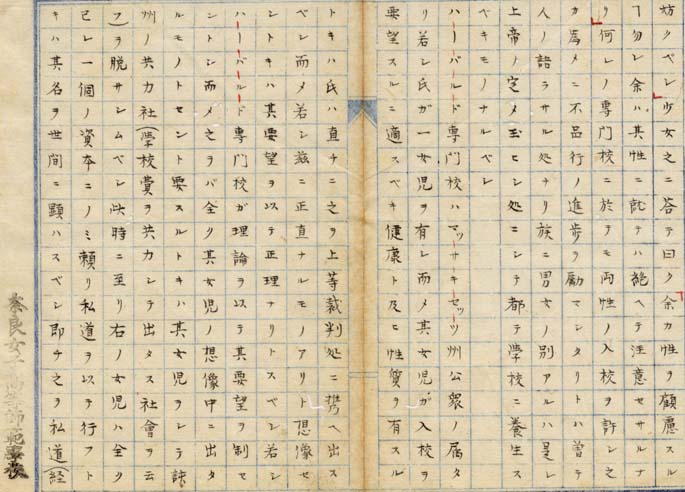 妨クベシ少女之ニ答テ曰ク余カ性ヲ顧慮スル
ヿ勿レ余ハ其性ニ就テハ絶ヘテ注意セサルナ
リ何レノ専門校ニ於テモ両性ノ入校ヲ許シ之
カ為メニ不品行ノ進歩ヲ勵マシタリトハ曽テ
人ノ語ラサル処ナリ族ニ男女ノ別アルハ是レ
上帝ノ定メ玉ヒシ処ニシテ都テ學校ニ養生ス
ベキモノナルベシ
ハーバルド専門校ハマッサキセッツ州公衆ノ属タ
リ若シ氏ガ一女児ヲ有シ而メ其女児ガ入校ヲ
要望スルニ適スベキ健康ト及ヒ性質ヲ有スル
トキハ氏ハ直チニ之ヲ上等裁判処ニ携ヘ出ス
ベシ而メ若シ茲ニ正直ナルモノアリト想像セ
ントキハ其要望ヲ以テ正理ナリトスベシ若シ
ハーバルド専門校ガ理論ヲ以テ其要望ヲ制セ
ントシ而メ之ヲバ全ク其女児ノ想像中ニ出タ
ルモノトセント要スルトキハ其女児ヲシテ該
州ノ共力社(學校費ヲ共力シテ出タス社會ヲ云
フ)ヲ脱サシムベシ此時ニ至リ右ノ女児ハ全ク
已レ一個ノ資本ニノミ頼リ私道ヲ以テ行フト
キハ其名ヲ世間ニ顕ハスベシ即チ之ヲ私道(経
奈良女子高等師範學校